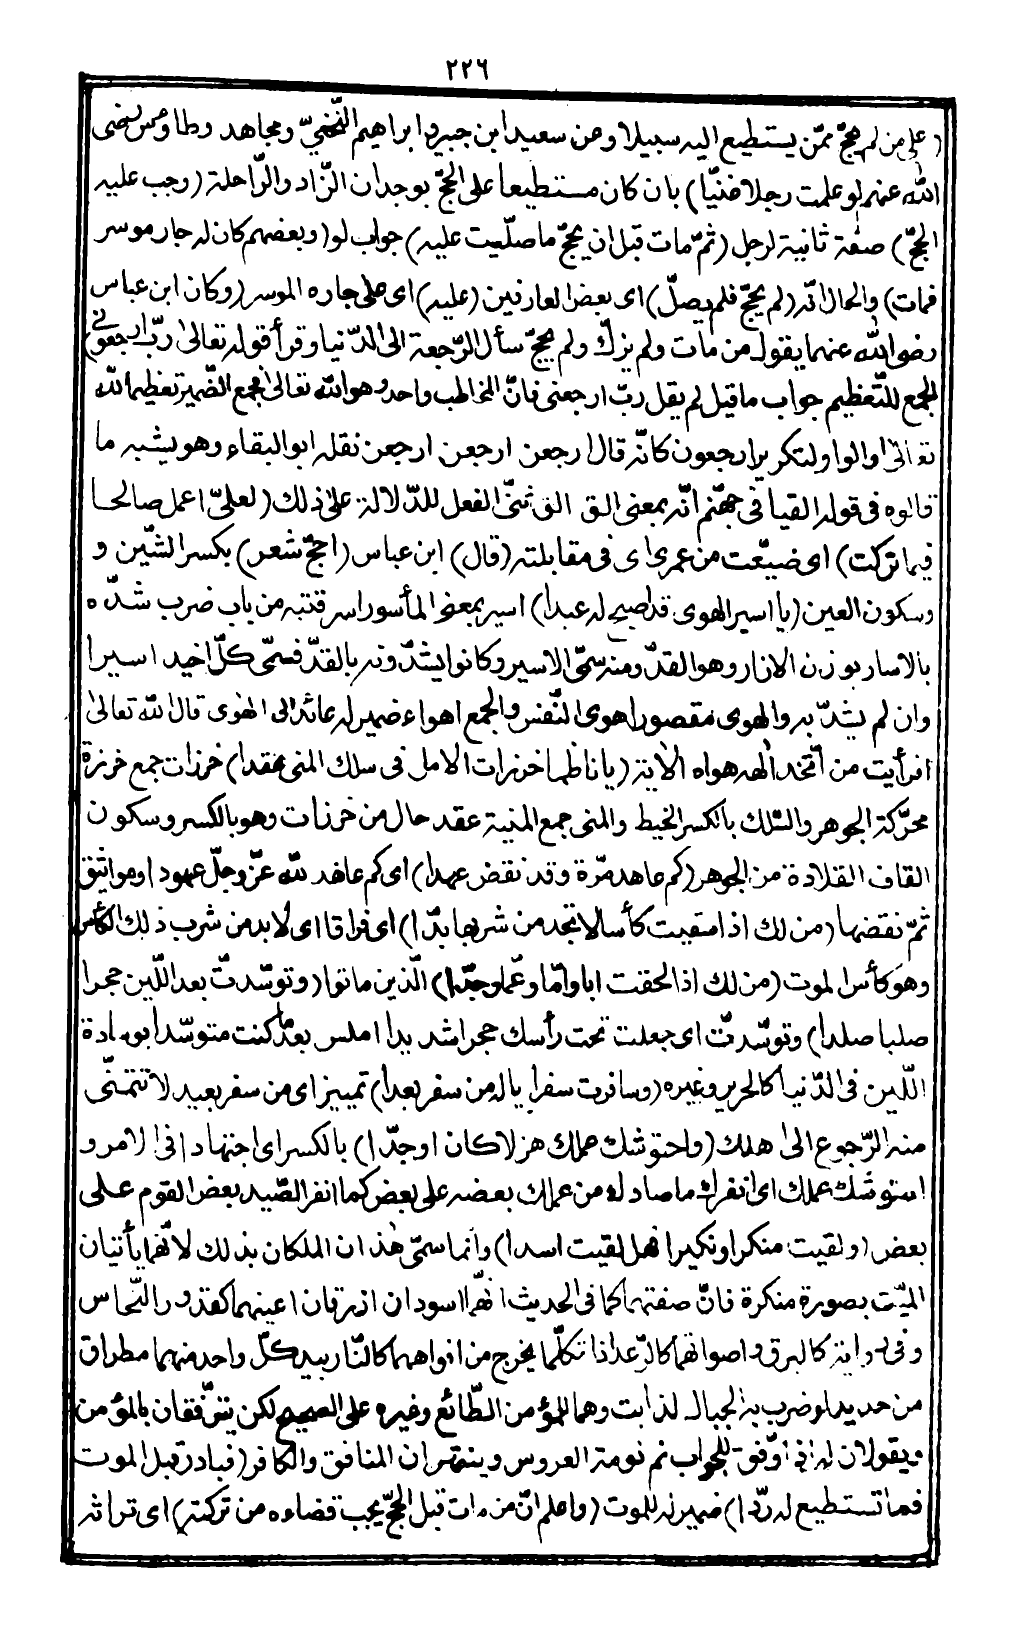 ٢٢٦
(على من لم يحجّ ممّن يستطيع اليه سبيلا وعن سعيد ابن جبير وابراهيم النّخعيّ ومجاهد وطاوس رضى
الله عنهم لو علمت رجلا غنيّا) بان كان مستطيعا على الحجّ بوجدان الزّاد والرّاحلة (وجب عليه
الحجّ) صفة ثانية لرجل (ثمّ مات قبل ان يحجّ ما صلّيت عليه) جواب لو (وبعضهم كان له جار موسر
فمات) والحال انّه (لم يحجّ فلم يصلّ) اى بعض العارفين (عليه) اى على جاره الموسر (وكان ابن عباس
رضى الله عنهما يقول من مات ولم يزكّ ولم يحجّ سأل الرّجعة الى الدّنيا وقرأ قوله تعالى ربّ ارجعونى)
الجمع للتّعظيم جواب ما قيل لم يقل ربّ ارجعنى فانّ المخاطب واحد وهو الله تعالى فجمع الضّمير تعظيما لله
تعالى او الواو لتكرير ارجعون كانّه قال ارجعن ارجعن ارجعن نقله ابو البقاء وهو يشبه ما
قالوه فى قوله القيا فى جهنّم انّه بمعنى الق الق ثنّى الفعل للدّلالة على ذلك (لعلىّ اعمل صالحا
فيما تركت) اى ضيّعت من عمرى اى فى مقابلته (قال) ابن عباس (احجّ شعر) بكسر الشّين و
وسكون العين (يا اسير الهوى قد اصبح له عبدا) اسير بمعنى المأسور اسر قتبه من باب ضرب شدّه
بالاسار بوزن الازار وهو القدّ ومنه سمّى الاسير وكانوا يشدّونه بالقدّ فسمّى كلّ اخيد اسيرا
وان لم يشدّ به والهوى مقصورا هوى النّفس والجمع اهواء ضمير له عائد الى الهوى قال الله تعالى
افرأيت من اتّخذ الهه هواه الاية (يا ناظما خرزات الامل فى سلك المنى عقدا) خرزات جمع خرزة
محرّكة الجوهر والسّلك بالكسر الخيط والمنى جمع المنية عقد حال من خرزات وهو بالكسر وسكون
القاف القلادة من الجوهر (كم عاهد مرّة وقد نقض عهدا) اى كم عاهد لله عزّ وجلّ عهودا ومواثيق
ثمّ نقضها (من لك اذا سقيت كأسا لا تجد من شربها بدّا) اى فراقا اى لا بد من شرب ذلك الكأس
وهو كأس الموت (من لك اذا لحقت ابا وامّا وعمّا وجدّا) الّذين ماتوا (وتوسّدتّ بعد اللّين حجرا
صلبا صلدا) وتوسّدتّ اى جعلت تحت رأسك حجرا شديدا املس بعد ما كنت متوسّدا بوسادة
اللّين فى الدّنيا كالحرير وغيره (وسافرت سفرا ياله من سفر بعدا) تمييز اى من سفر بعيد لا تتمنّى
منه الرّجوع الى اهلك (واحتوشك عملك هزلا كان او جدّا) بالكسر اى اجتهادا فى الامر و
استوشك عملك اى انفرك ما صادك من عملك بعضه على بعض كما انفر الصّيد بعض القوم على
بعض (ولقيت منكرا ونكيرا فهل لقيت اسدا) وانما سمّى هذان الملكان بذلك لانّهما يأتيان
الميّت بصورة منكرة فانّ صفتهما كما فى الحديث انّهما اسودان ازرقان اعينهما كقدور النّحاس
وفى رواية كالبرق واصواتهما كالرّعد اذا تكلّما يخرج من افواههما كالنّار بيد كلّ واحد منهما مطراق
من حديد لو ضرب به الجبال لذابت وهما للمؤمن الطّائع وغيره على الصحيح لكن يترفّقان بالمؤمن
ويقولان له اذا وفّق للجواب نم نومة العروس وينتهران المنافق والكافر (فبادر قبل الموت
فما تستطيع له ردّا) ضمير له للموت (واعلم انّ من مات قبل الحجّ يجب قضاءه من تركته) اى تراثه